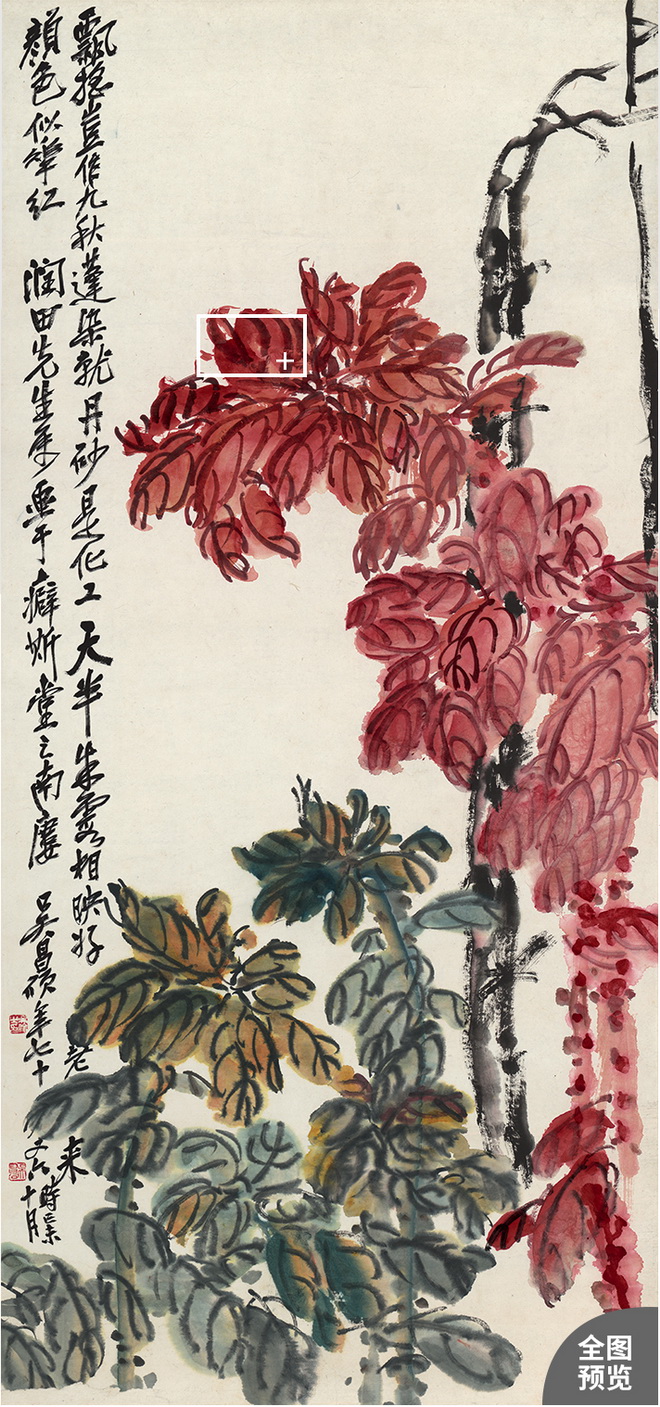 飄搖豈作九秋蓬染就丹砂是化工天半朱霞相映好老来
顏色似華紅 潤田先生屬畫于癖斯堂之南廔 吳昌碩年七十又六
時己未十月
全图
预览